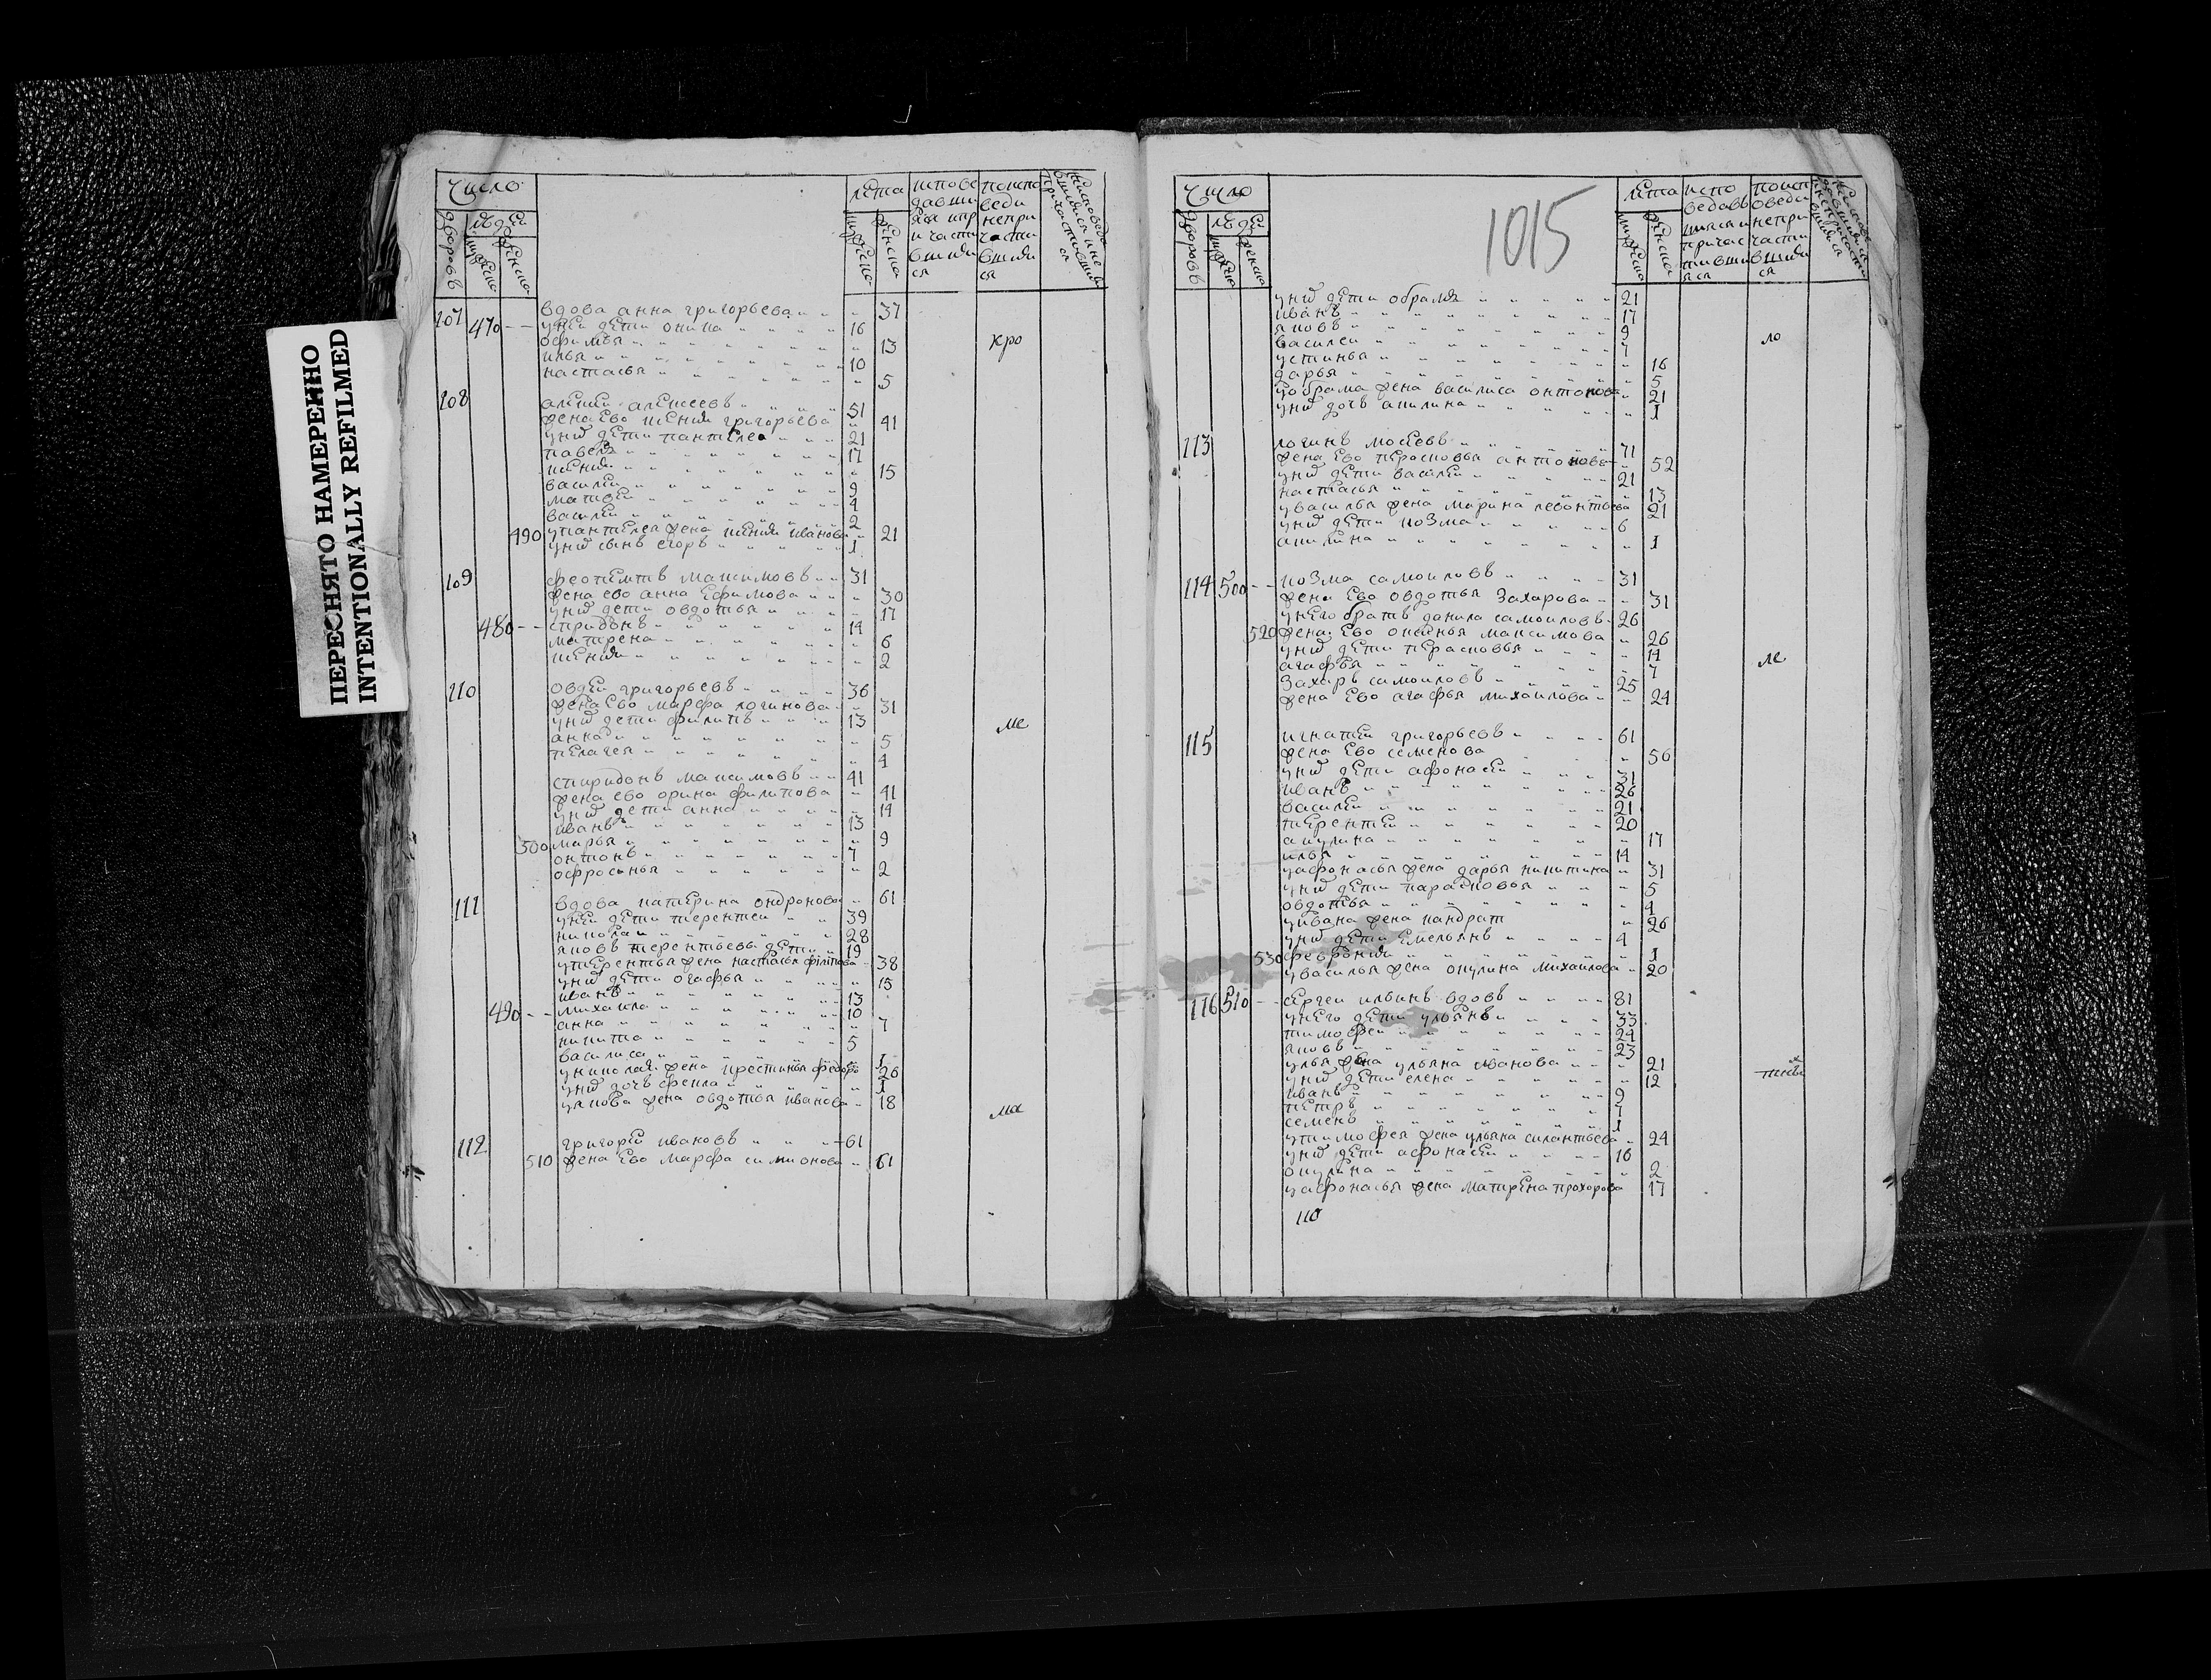 ПЕРЕСНЯТО НАМЕРЕННО
INTENTIONALLY REFILMED
число
дворовъ
людей
мужеска
женска
лета
мужеска
женска
исповедавшияся и причастившияся
по исповеди не причастившияся
107 470 вдова анна григорьева 37
у ней дети 16
офимья 13
илья 10
настасья 5
кро
108 алексей алексеевъ 51
жена ево ксения григорьева 41
у них дети пантелеа 21
павелъ 17
ксения 15
василей 9
матвей 4
василей 2
490 у пантелея жена ксения иванова 21
у них сынъ егоръ 1
109 феопемптъ максимовъ 31
жена ево анна ефимова 30
у них дети овдотья 17
480 спиридонъ 14
матрена 6
ксения 2
110 овдей григорьевъ 36
жена ево марфа логинова 31
у них дети филипъ 13
анна 5
пелагея 4
спиридонъ максимовъ 41
жена ево орина филипова 41
у них дети анна 14
иванъ 13
500 марья 9
онтонъ 7
офросинья 2
111 вдова катерина ондронова 61
у ней дети терентей 39
николаи 28
яковъ терентьевы дети 19
у терентья жена настасья филипова 38
у них дети огафья 15
иванъ 13
490 михаила 10
анна 7
никита 5
василиса 1
у николая жена крестинья федоро 26
у них дочь фекла 1
у якова жена овдотья иванова 18
112 григорей ивановъ 61
510 жена ево марфа симионова 61
число
дворовъ
людей
мужеска
женска
1015
лета
мужеска
женска
исповедавшияся и причастившияся
по исповеди не причастившияся
у них дети обрамъ 21
иванъ 17
яковъ 9
василей 7
устинья 16
дарья 5
у обрама жена василиса онтонова 21
у них дочь акилина 1
113 логинъ мосеевъ 71
жена ево перасковья антонова 52
у них дети василей 21
настасья 13
у василья жена марина левонтьева 21
у них дети козма 6
акилина 1
114 500 козма самоиловъ 31
жена ево овдотья захарова 31
у него братъ данила самоиловъ 26
520 жена ево оксинья максимова 26
у них дети перасковья 14
агафья 7
захаръ самоиловъ 25
жена ево агафья михаилова 24
115 игнатей григорьевъ 61
жена ево семенова 56
у них дети афонасей 31
иванъ 26
василей 21
терентей 20
акулина 17
илья 14
у афонасья жена дарья никитина 31
у них дети парасковья 5
овдотья 4
у ивана жена кандрат 26
у них дети емельянъ 4
530 феврония 1
у василья жена окулина михаилова 20
116 510 сергеи ильинъ вдовъ 81
у него дети ульянъ 33
тимофеи 24
яковъ 23
у улья жена ульяна иванова 21
у них дети елена 12
иванъ 9
петръ 7
семенъ 1
у тимофея жена ульяна силантьева 24
у них дети афонасей 16
окулина 2
у афонасья жена матрена прохорова 17
110